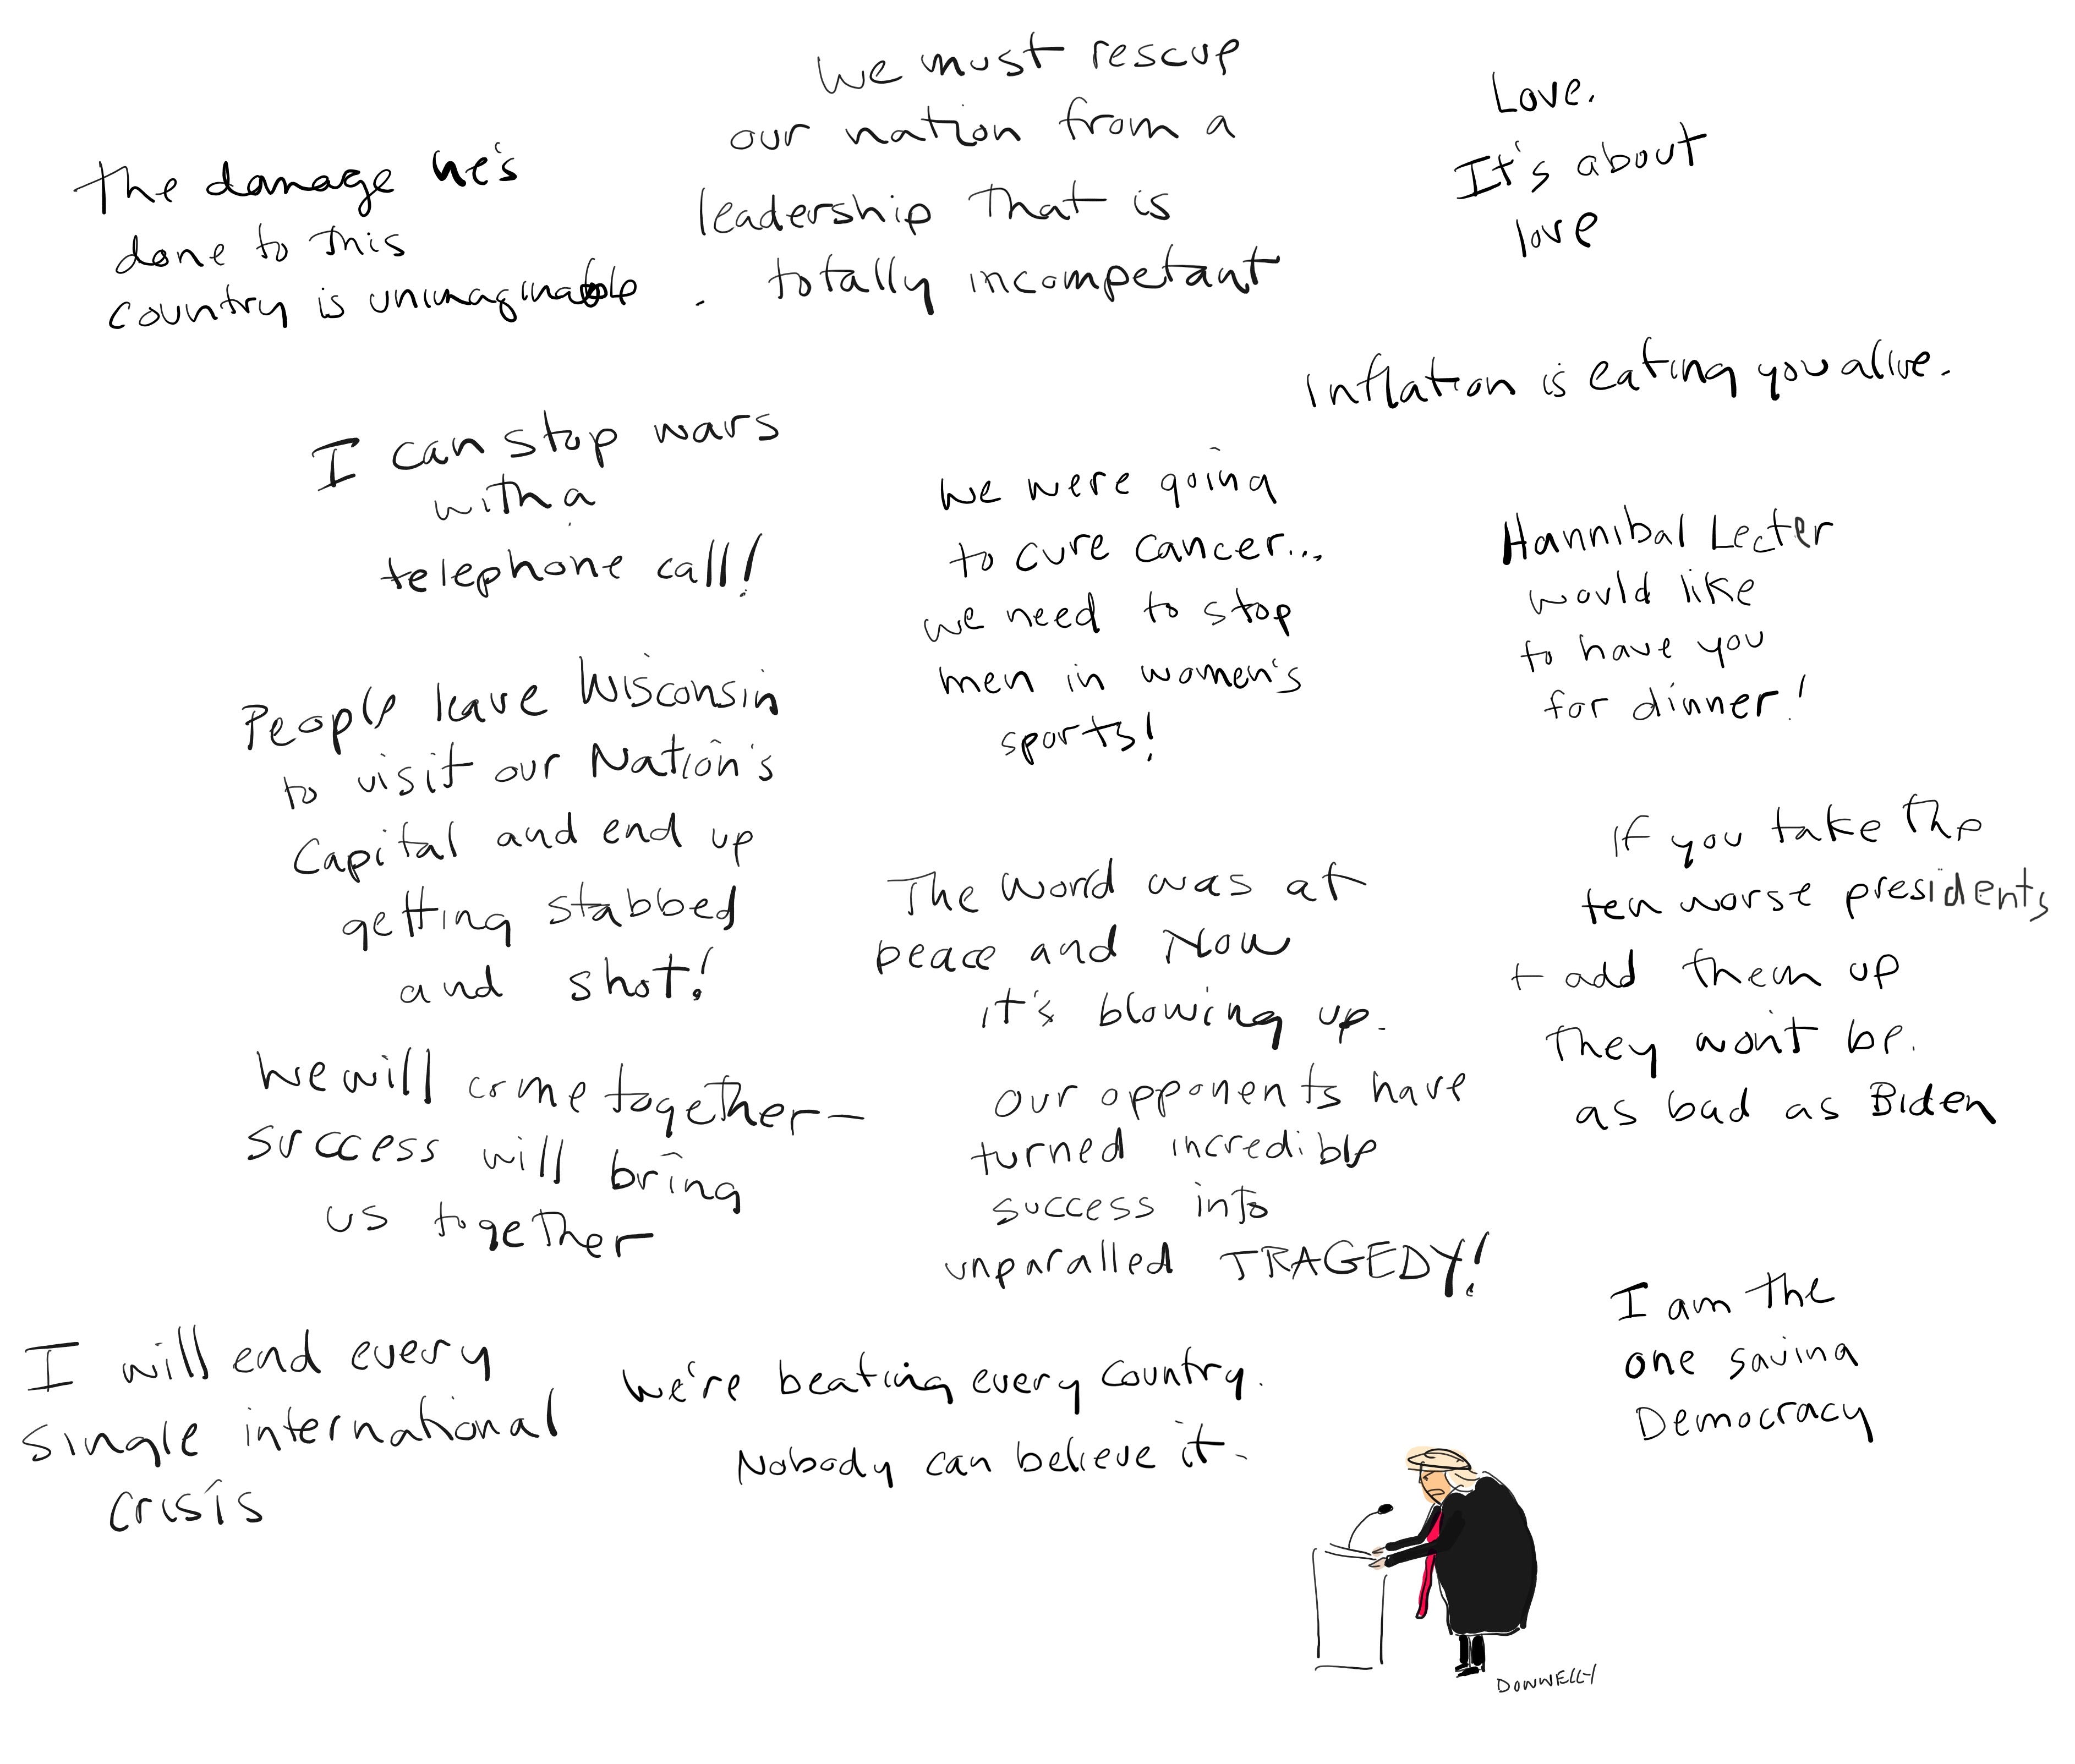 The damage he's
done to this
country is unimaginable.
We must rescue
our nation from a
leadership that is
totally incompetant
Love.
It's about
love
Inflation is eating you alive.
I can stop wars
with a
telephone call!
We were going
to cure cancer...
we need to stop
men in women's
sports!
Hannibal Lecter
would like
to have you
for dinner!
People leave Wisconsin
to visit our Nation's
Capital and end up
getting stabbed
and shot!
The world was at
peace and Now
it's blowing up.
If you take the
ten worse presidents
+ add them up
they won't be.
as bad as Biden
We will come together—
success will bring
us together
Our opponents have
turned incredible
success into
unparalled TRAGEDY!
I will end every
single international
crisis
We're beating every country.
Nobody can believe it.
I am the
one saving
Democracy
DONNELLY